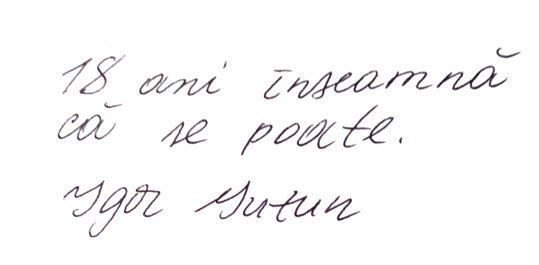 18 ani înseamnă
că se poate.
Igor Guțun